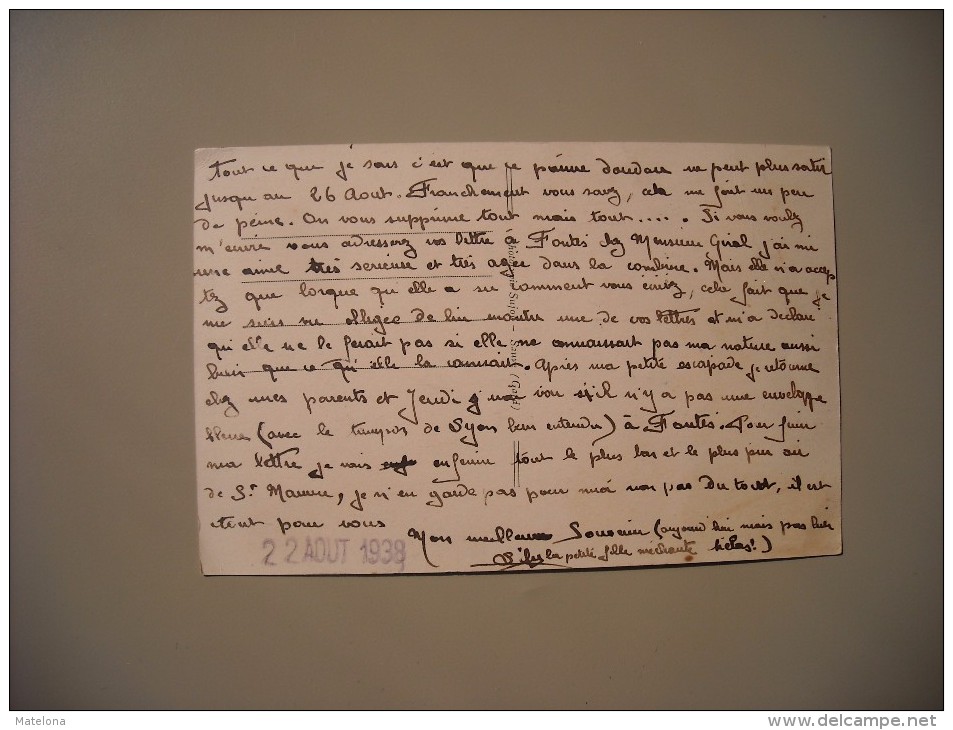 Tout ce que je sais c'est que ce pauvre doudou ne peut plus sortir
jusqu'au 26 Aout. Franchement vous savez, cela me fait un peu
de peine. On vous supprime tout mais tout..... Si vous voulez
m'ecrire vous adresserez vos lettre à Fontès chez Monsieur Giral j'ai mi
une amie très serieuse et très agée dans la combine. Mais elle n'a accep
tez que lorsque qu'elle a su comment vous ecriez, cela fait que je
me suis vu obligee de lui montre une de vos lettres et m'a déclaré
qu'elle ne le ferait pas si elle ne connaissait pas ma nature aussi
bien que ce qu'elle la connait. Après ma petite escapade je retourne
chez mes parents et Jeudi j'irai voir s'il n'y a pas une enveloppe
bleue (avec le timpre de Lyon bien entendu) à Fontès. Pour finir
ma lettre je vais enfermer tout le plus bon et le plus pur air
de St Maurice, je n'en garde pas pour moi non pas du tout, il est
tout pour vous
Mon meilleur Souvenir (aujourd'hui mais pas hier
la petite fille méchante hélas!)
22 AOUT 1938
Matelona
www.delcampe.net